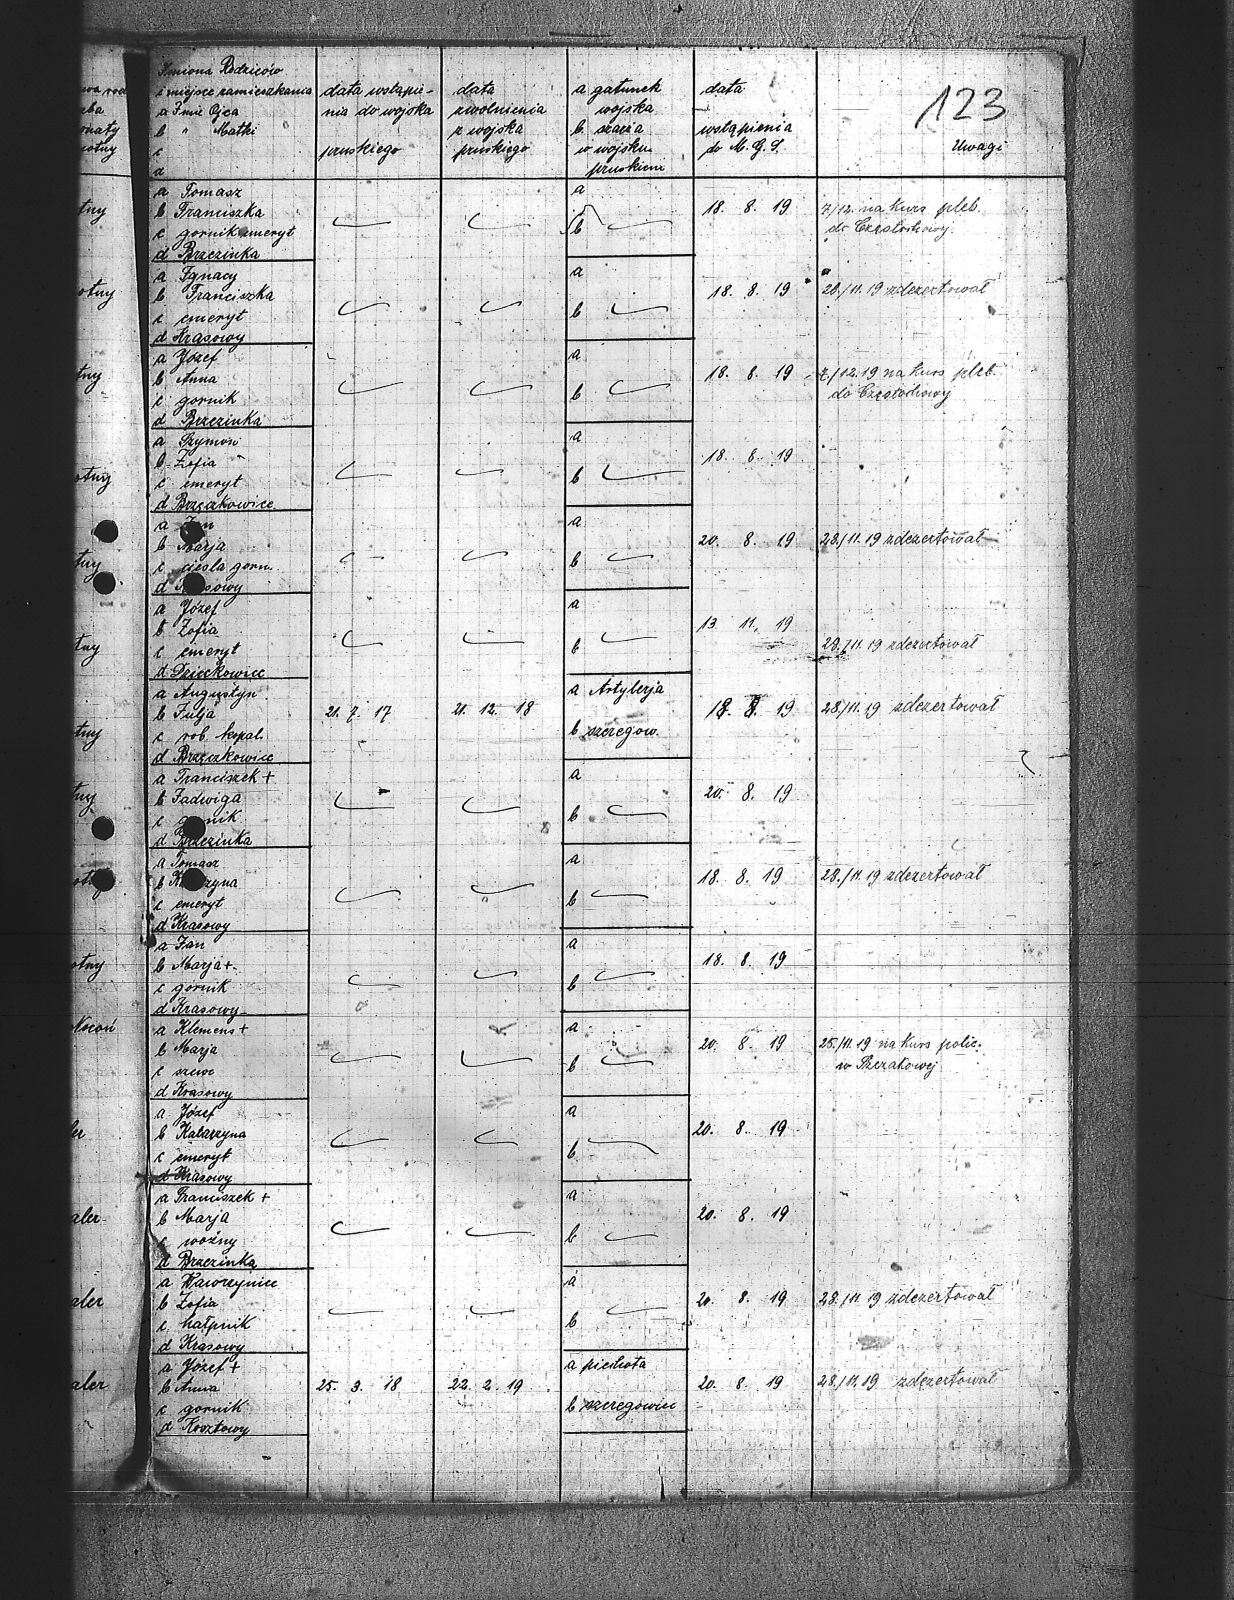 123
Imiona Rodziców
i miejsce zamieszkania
a Imię Ojca
b " Matki
c
d
data wstąpie-
nia do wojska
pruskiego
data
zwolnienia
z wojska
pruskiego
a gatunek
wojska
b szarża
w wojsku
pruskiem
data
wstąpienia
do M.G.S.
Uwagi
a Tomasz
b Franciszka
c gornik emeryt
d Brzezinka
a
b
18. 8. 19
7/12. na kurs pleb.
do Częstochowy.
a Ignacy
b Franciszka
c emeryt
d Krasowy
a
b
18. 8. 19
28/11.19 zdezertował
a Józef
b Anna
c gornik
d Brzezinka
a
b
18. 8. 19
7/12.19 na kurs pleb.
do Częstochowy
a Szymon
b Zofia
c emeryt
d Brzęczkowice
a
b
18. 8. 19
a Jan
b Marja
c ciesla gorn.
d Krasowy
a
b
20. 8. 19
28/11.19 zdezertował
a Józef
b Zofia
c emeryt
d Dzieckowice
a
b
13 11. 19
28./11.19 zdezertował
a Augustyn
b Julja
c rob. kopal.
d Brzęczkowice
21. 7. 17
21. 12. 18
a Artylerja
b szeregow.
18. 8. 19
28/11.19 zdezertował
a Franciszek +
b Jadwiga
c gornik
d Brzezinka
a
b
20. 8. 19
a Tomasz
b Katarzyna
c emeryt
d Krasowy
a
b
18. 8. 19
28./11.19 zdezertował
a Jan
b Marja +
c górnik
d Krasowy
a
b
18. 8. 19
a Klemens +
b Marja
c szewc
d Krasowy
a
b
20. 8. 19
25./11.19 na kurs polic.
w
a Józef
b Katarzyna
c emeryt
d Krasowy
a
b
20. 8. 19
a Franciszek +
b Marja
c woźny
d Brzezinka
a
b
20. 8. 19
a Wawrzyniec
b Zofia
c hałpnik
d Krasowy
a
b
20. 8. 19
28./11.19 zdezertował
a Józef +
b Anna
c gornik
d Kosztowy
25. 3. 18
22. 2. 19
a piechota
b szeregowiec
20. 8. 19
28./11.19 zdezertował